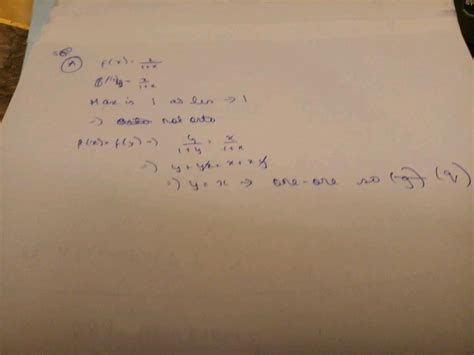 (A) f(x) = x/1+x
x/1+x
Max is 1 as lim → 1
⇒ not onto
f(x) = f(y) ⇒ y/1+y = x/1+x
⇒ y + yx = x + xy
⇒ y = x → one-one so (q)